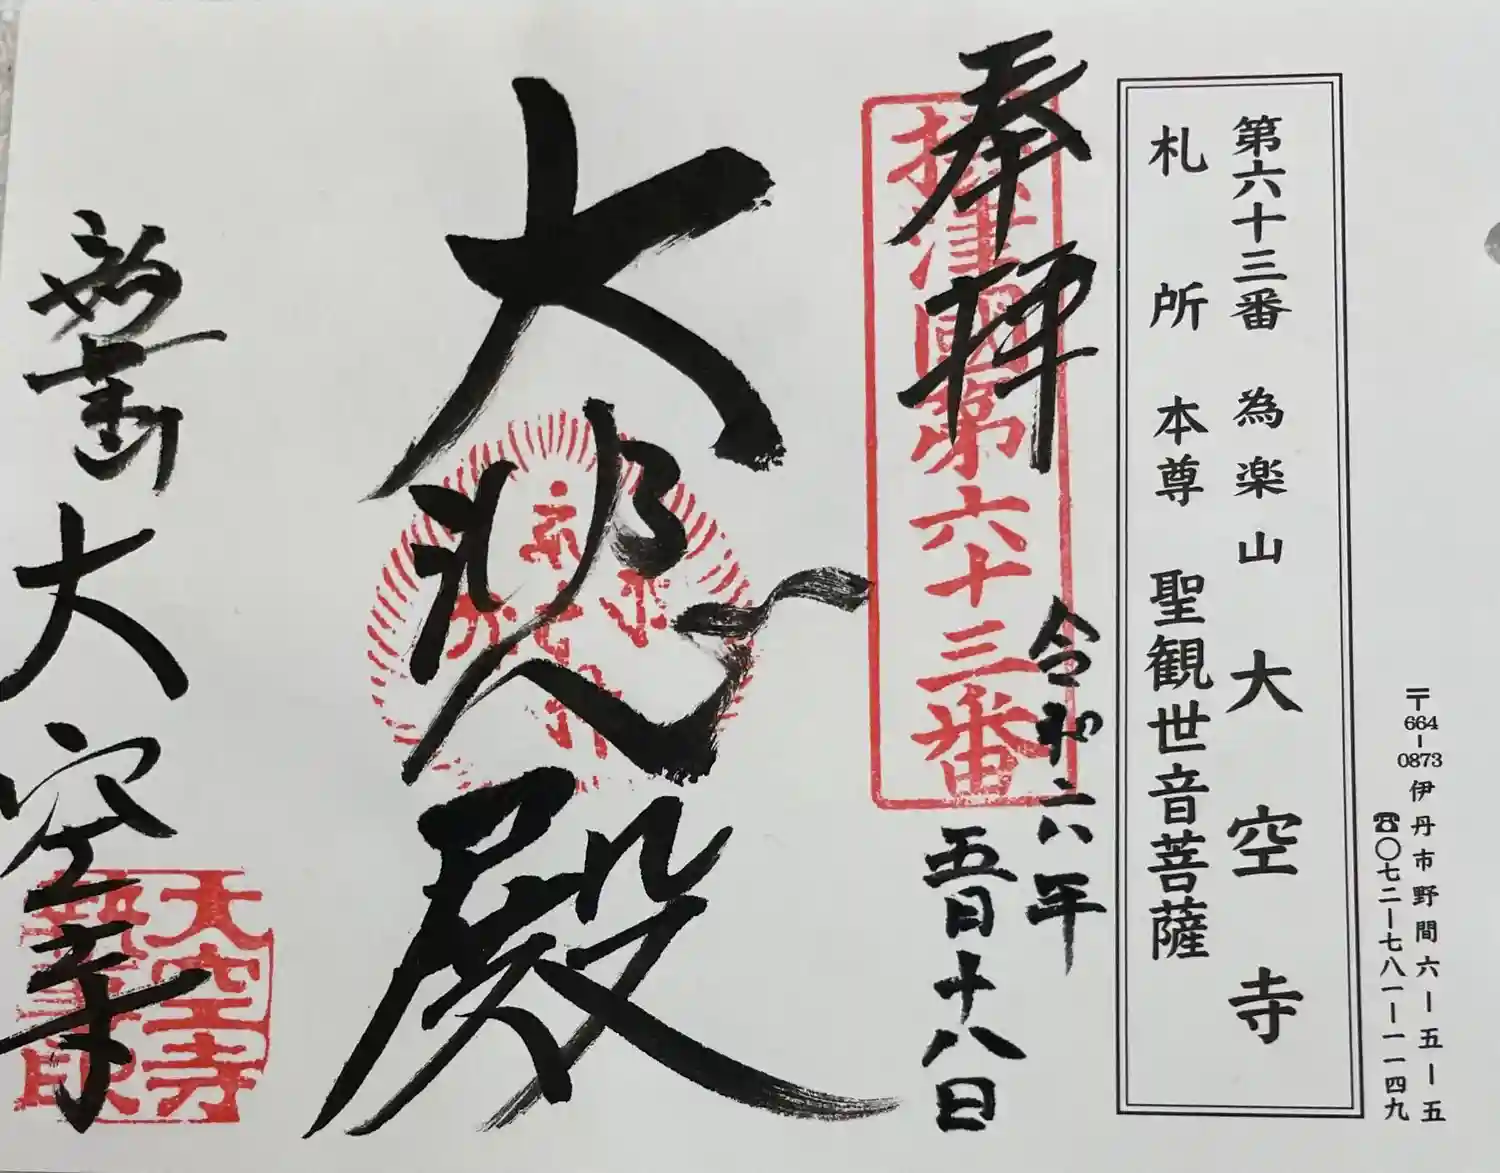 〒664-0873 伊丹市野間六ー五ー五
☎〇七二ー七八一ー一一四九
第六十三番 為楽山 大空寺
札所本尊 聖観世音菩薩
奉拝
摂津國第六十三番
令和六年
五月十八日
大悲殿
大空寺
大空寺